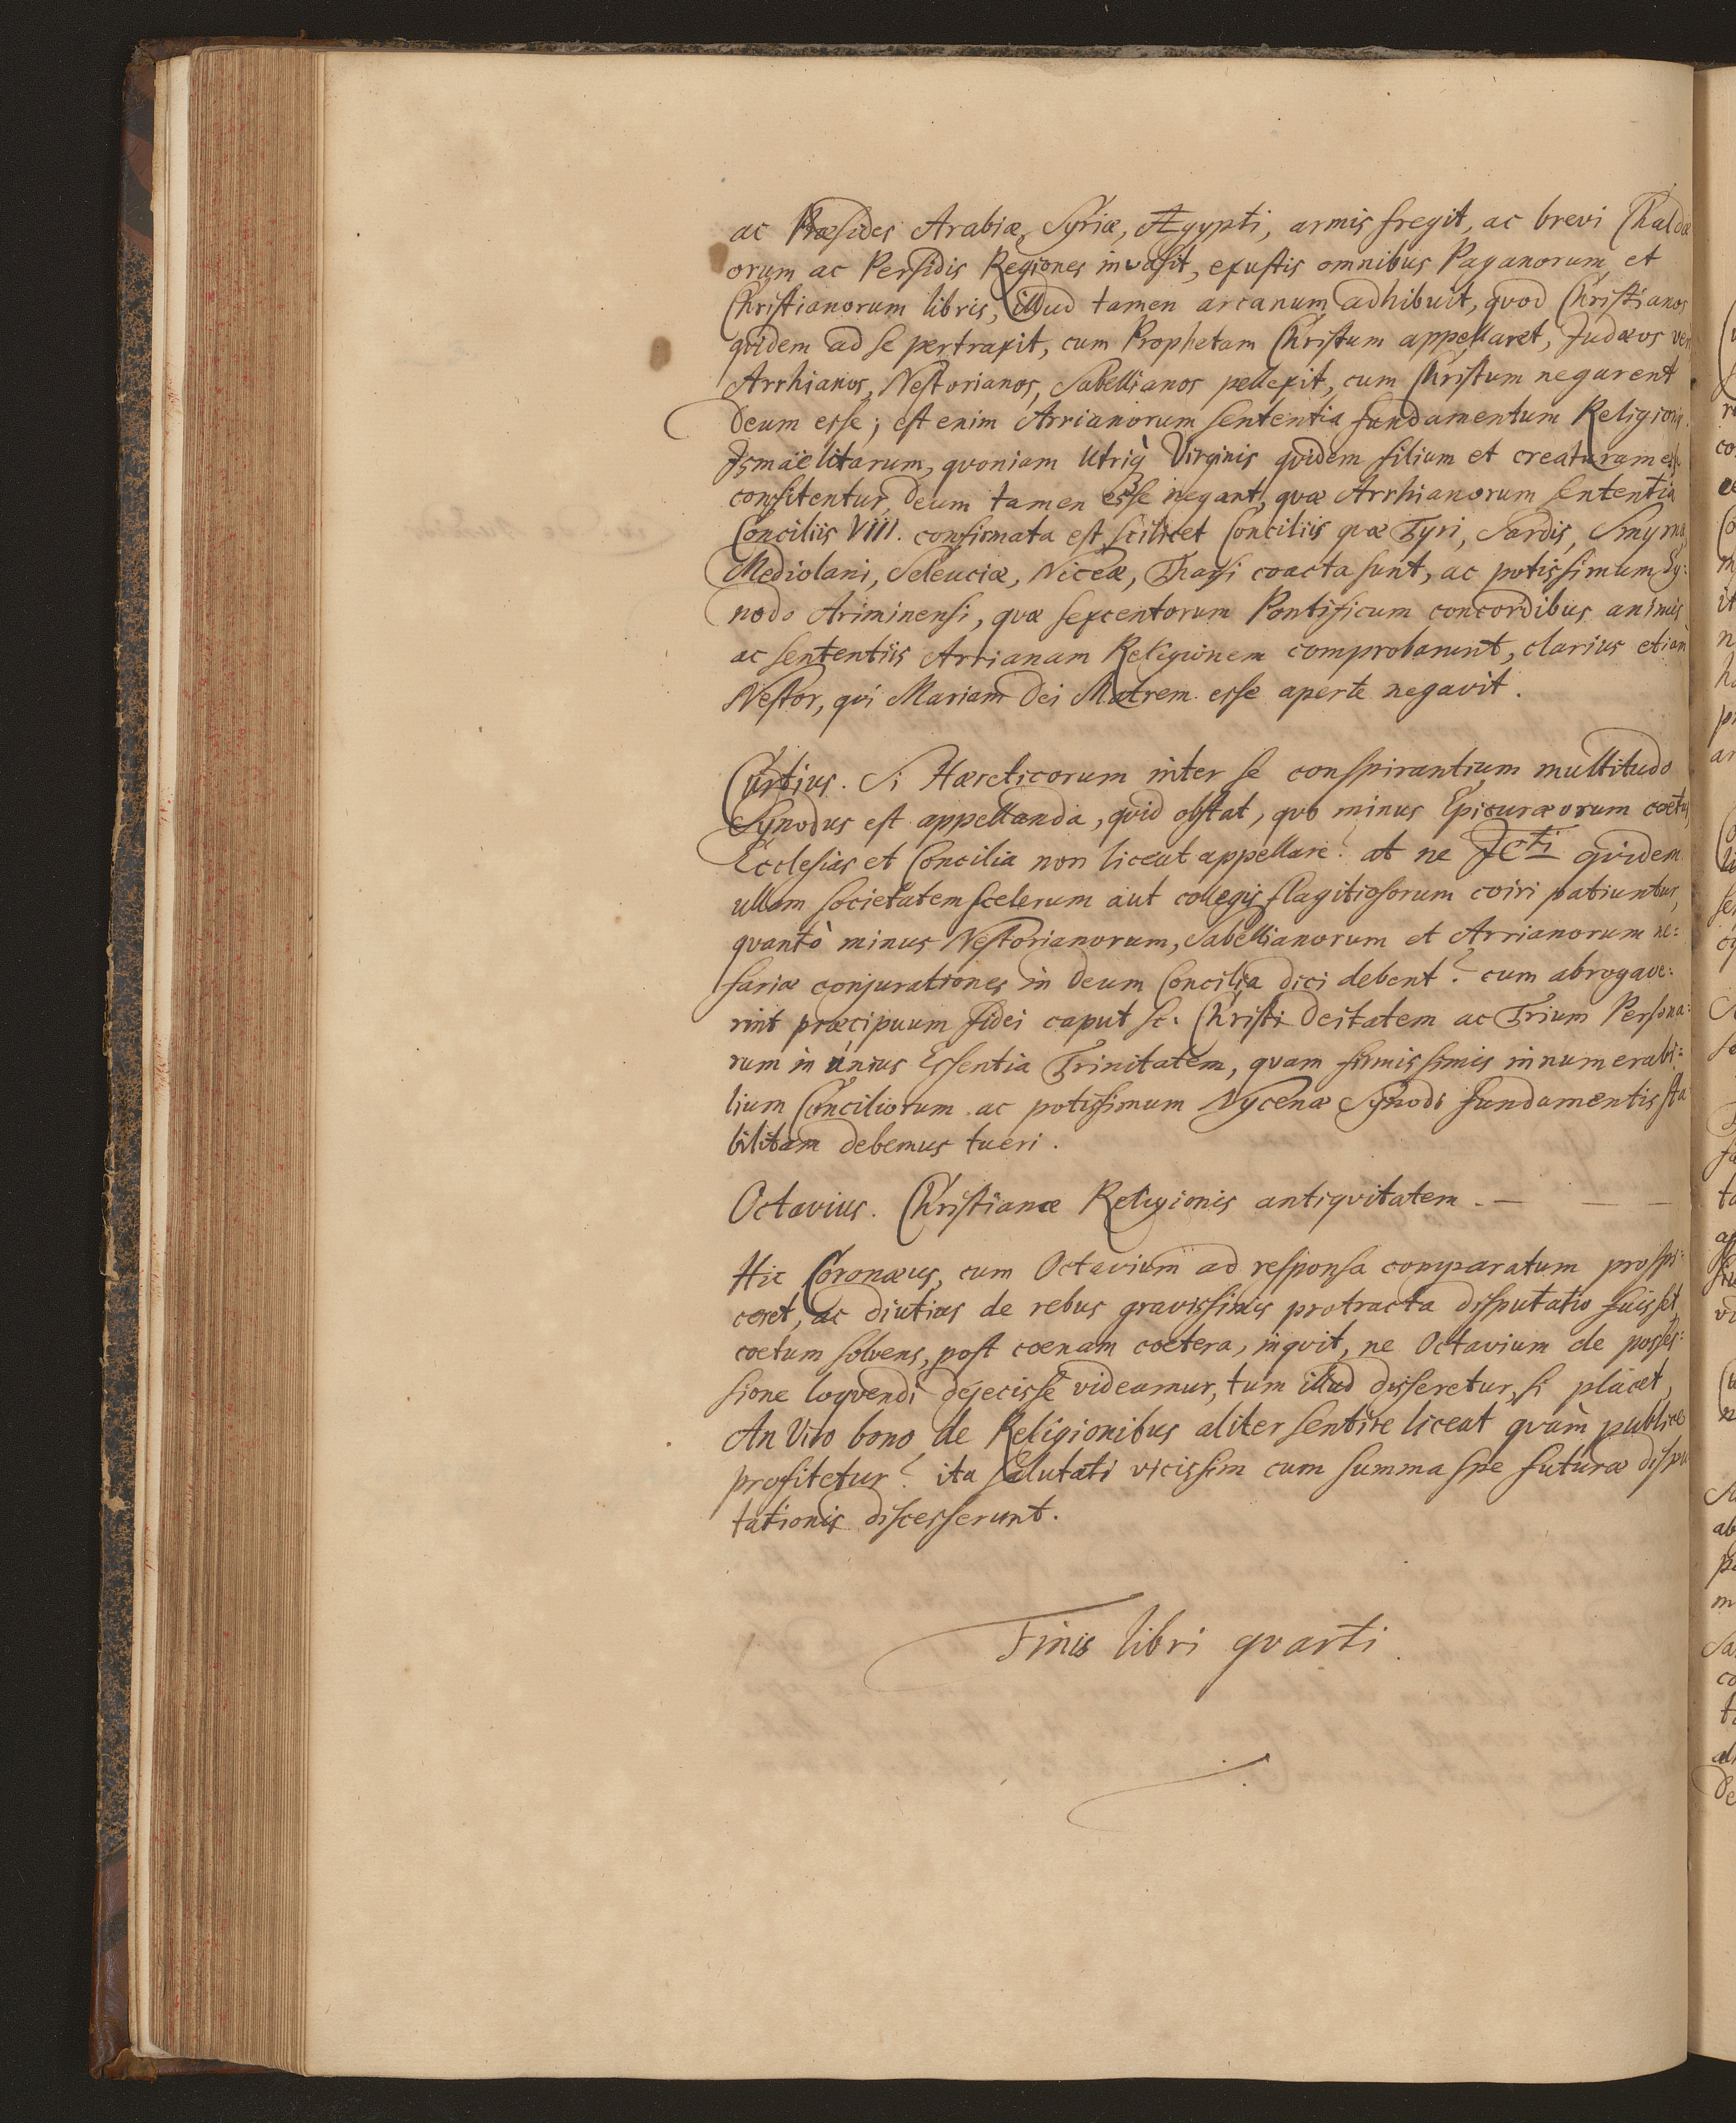 ac Præsides Arabiæ, Syriæ, Ægypti, armis fregit, ac brevi Chaldæ
orum ac Persidis Regiones invasit, exustis omnibus Paganorum et
Christianorum libris, illud tamen arcanum adhibuit, qvod Christianos
qvidem ad se pertraxit, cum Prophetam Christum appellaret, Judæos ver
Arrhianos, Nestorianos, Sabellianos pellexit, cum Christum negarent
Deum esse; est enim Arrianorum sententia fundamentum Religionis
Ismaëlitarum, qvoniam Utriq Virginis qvidem filium et creaturam
confitentur, Deum tamen esse negant, qvæ Arrhianorum sententia
Conciliis VIII. confirmata est, scilicet Conciliis qvæ Tyri, Sardis, Smyrnæ,
Mediolani, Seleuciæ, Niceæ, Tharsi coacta sunt, ac potissimum Sy:
nodo Ariminensi, qvæ sexcentorum Pontificum concordibus animis
ac sententiis Arrianam Religionem comprobarunt, clarius etiam
Nestor, qvi Mariam Dei Matrem esse aperte negavit.
Curtius. Si Hæreticorum inter se conspirantium multitudo
Synodus est appellanda, qvid obstat, qvo minus Epicuræorum coetus
Ecclesias et Concilia non liceat appellare? at ne JCti qvidem
ullam societatem scelerum aut collegis flagitiosorum coiri patiuntur,
qvantò minus Nestorianorum, Sabellianorum et Arrianorum ne:
fariæ conjurationes in Deum Concilia dici debent? cum abrogave:
rint præcipuum fidei caput sc. Christi Deitatem ac Trium Persona:
rum in unius Essentia Trinitatem, qvam firmissimis innumerabi:
lium Conciliorum ac potissimum Nycenæ Synodi fundamentis sta
bilitam debemus tueri.
Octavius. Christianæ Religionis antiqvitatem. — — —
Hic Coronæus, cum Octavium ad responsa comparatum prospi:
ceret, ac diutius de rebus gravissimis protracta disputatio fuisset,
coetum solvens, post coenam coetera, inqvit, ne Octavium de posses:
sione loqvendi dejecisse videamur, tum illud disseretur, si placet,
An Viro bono de Religionibus aliter sentire liceat qvàm publice
profitetur? ita salutati vicissim cum summa spe futuræ dispu
tationis discesserunt.
Finis libri qvarti.